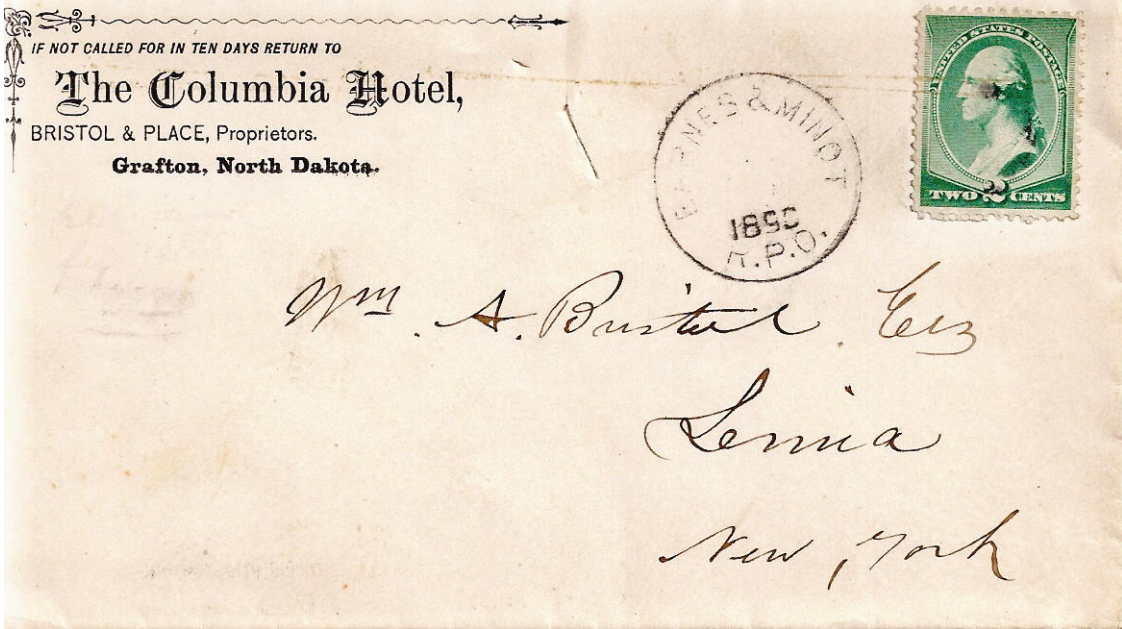 IF NOT CALLED FOR IN TEN DAYS RETURN TO
The Columbia Hotel,
BRISTOL & PLACE, Proprietors.
Grafton, North Dakota.
BARNES & MINOT
1890
R.P.O.
UNITED STATES POSTAGE
TWO 2 CENTS
Wm. A. Bristol Esq
Lima
New York